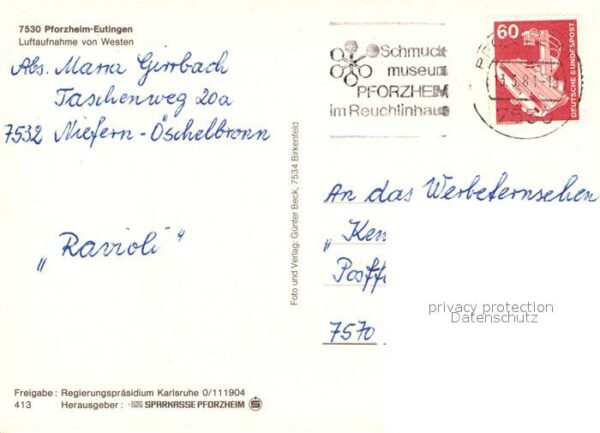 7530 Pforzheim-Eutingen
Luftaufnahme von Westen
Abs. Maria Girrbach
Taschenweg 20a
7532 Niefern-Öschelbronn
"Ravioli"
Freigabe: Regierungspräsidium Karlsruhe 0/111904
413 Herausgeber: SPARKASSE PFORZHEIM
Foto und Verlag: Günter Beck, 7534 Birkenfeld
Schmuck
museum
PFORZHEIM
im Reuchlinhaus
60
DEUTSCHE BUNDESPOST
An das Werbefernsehen
"Ken
Postf
7570
privacy protection
Datenschutz